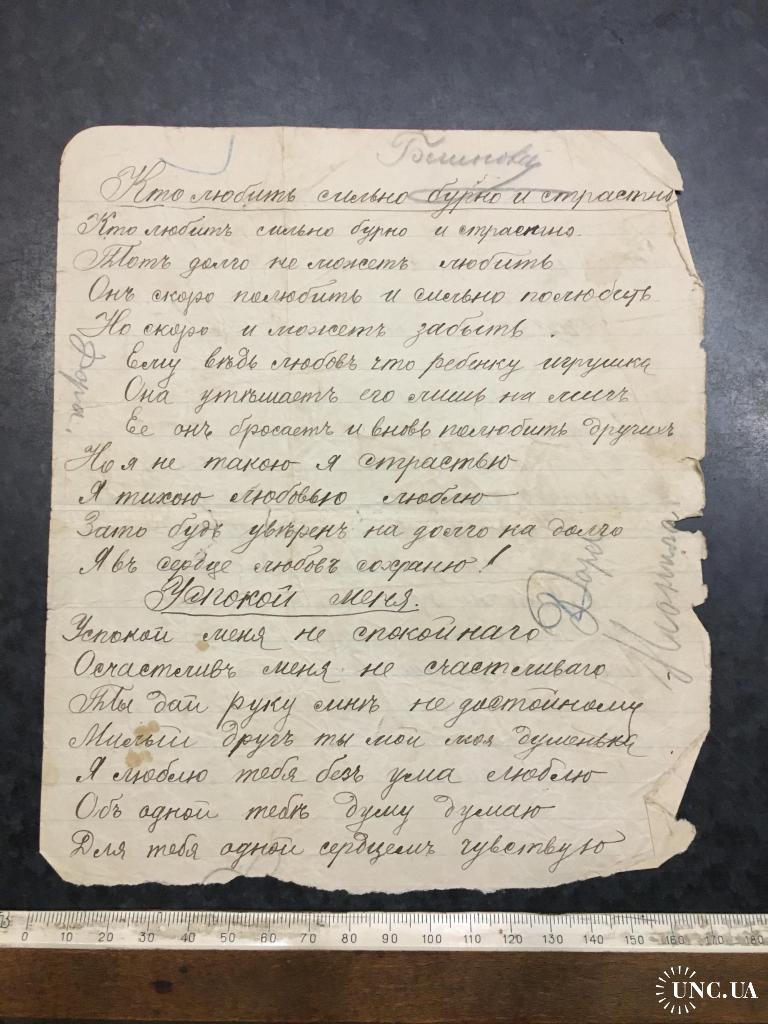 Кто любитъ сильно бурно и страстно
Кто любитъ сильно бурно и страстно.
Тотъ долго не можетъ любить
Онъ скоро полюбитъ и сильно полюбитъ
Но скоро и можетъ забыть.
Ему вѣдь любовъ что ребенку игрушка
Она утѣшаетъ его лишь на мигъ
Ее онъ бросаетъ и вновь полюбитъ другихъ
Но я не такою я страстью
Я тихою любовью люблю
Зато будь увѣренъ на долго на долго
Я въ сердце любовъ сохраню!
Успокой меня.
Успокой меня не спокойнаго
Осчастливь меня не счастливаго
Ты дай руку мнѣ не достойному
Милый другъ ты мой моя думенька
Я люблю тебя безъ ума люблю
Объ одной тебѣ думу думаю
Для тебя одной сердцемъ чувствую
0 10 20 30 40 50 60 70 80 90 100 110 120 130 140 150 160 170 180
UNC.UA